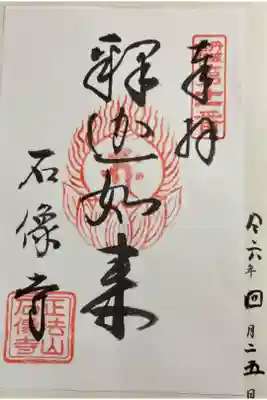 奉拝
釋迦如来
石像寺
正法山
石像寺
令六年四月二五日